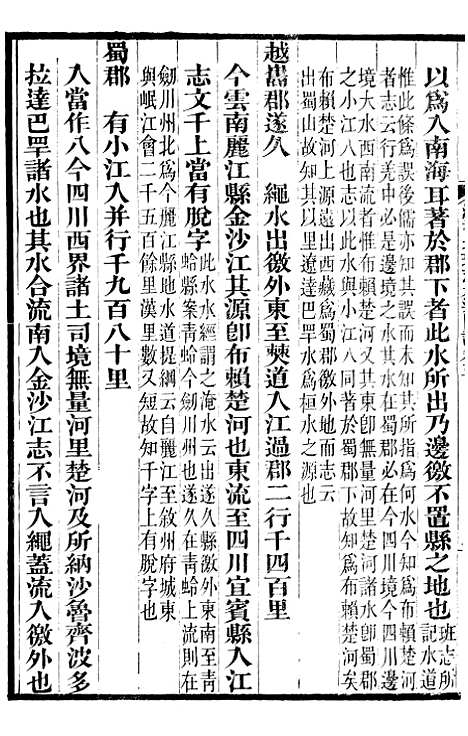 以爲入南海耳著於郡下者此水所出乃邊徼不置縣之地也班志所記水道
惟此條爲誤後儒亦知其誤而未知其所指爲何水今知爲布賴楚河
者志云行羌中必是邊境之水其水在蜀郡必在今四川境今四川邊
境大水西南流者惟此布賴楚河又其東卽無量河里楚河諸水卽蜀郡
之小江入八也志以此水與小江入八同著於蜀郡下故知爲布賴楚河矣
布賴楚河上源遠出西藏爲蜀郡徼外地而志云
出蜀山故知其以里遼達巴罕水爲桓水之源也
越巂郡遂久　繩水出徼外東至僰道入江過郡二行千四百里
今雲南麗江縣金沙江其源卽布賴楚河也東流至四川宜賓縣入江
志文千上當有脫字此水水經謂之淹水云出遂久縣徼外東南至青
蛉縣案青蛉今劒川州也遂久縣旣在青蛉上流則在
劒川州北爲今麗江縣地水道提綱云自麗江至敘州府城東
與岷江會二千五百餘里漢里數又短故知千字上有脫字也
蜀郡　有小江入并行千九百八十里
入當作八今四川西界諸土司境無量河里楚河及所納沙魯齊波多
拉達巴罕諸水也其水合流南入金沙江志不言入繩蓋流入徼外也